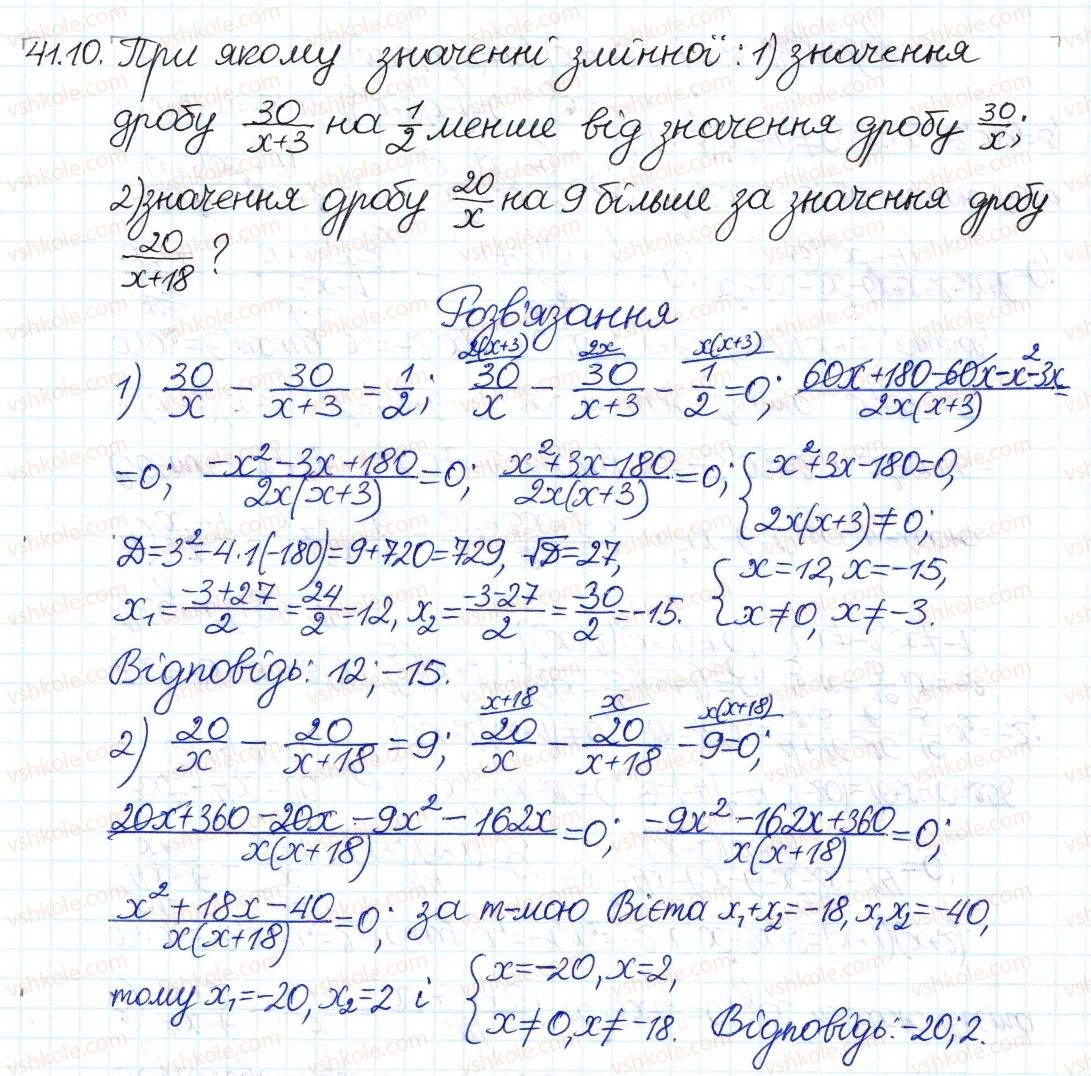 41.10. При якому значенні змінної: 1) значення
дробу 30/(x+3) на 1/2 менше від значення дробу 30/x;
2) значення дробу 20/x на 9 більше за значення дробу
20/(x+18)?
Розв'язання
1) 30/x − 30/(x+3) = 1/2; 2(x+3)/ 30/x − 2x/ 30/(x+3) − x(x+3)/ 1/2 = 0; (60x+180−60x−x²−3x)/(2x(x+3)) =
=0; (−x²−3x+180)/(2x(x+3)) = 0; (x²+3x−180)/(2x(x+3)) = 0; { x²+3x−180=0,
2x(x+3)≠0;
D=3²−4·1(−180)=9+720=729, √D=27,
x₁ = (−3+27)/2 = 24/2 = 12, x₂ = (−3−27)/2 = −30/2 = −15. { x=12, x=−15,
x≠0, x≠−3.
Відповідь: 12; −15.
2) 20/x − 20/(x+18) = 9; x+18/ 20/x − x/ 20/(x+18) − x(x+18)/ 9 = 0;
(20x+360−20x−9x²−162x)/(x(x+18)) = 0; (−9x²−162x+360)/(x(x+18)) = 0;
(x²+18x−40)/(x(x+18)) = 0; за т-мою Вієта x₁+x₂=−18, x₁x₂=−40,
тому x₁=−20, x₂=2 і { x=−20, x=2,
x≠0, x≠−18. Відповідь: −20; 2.